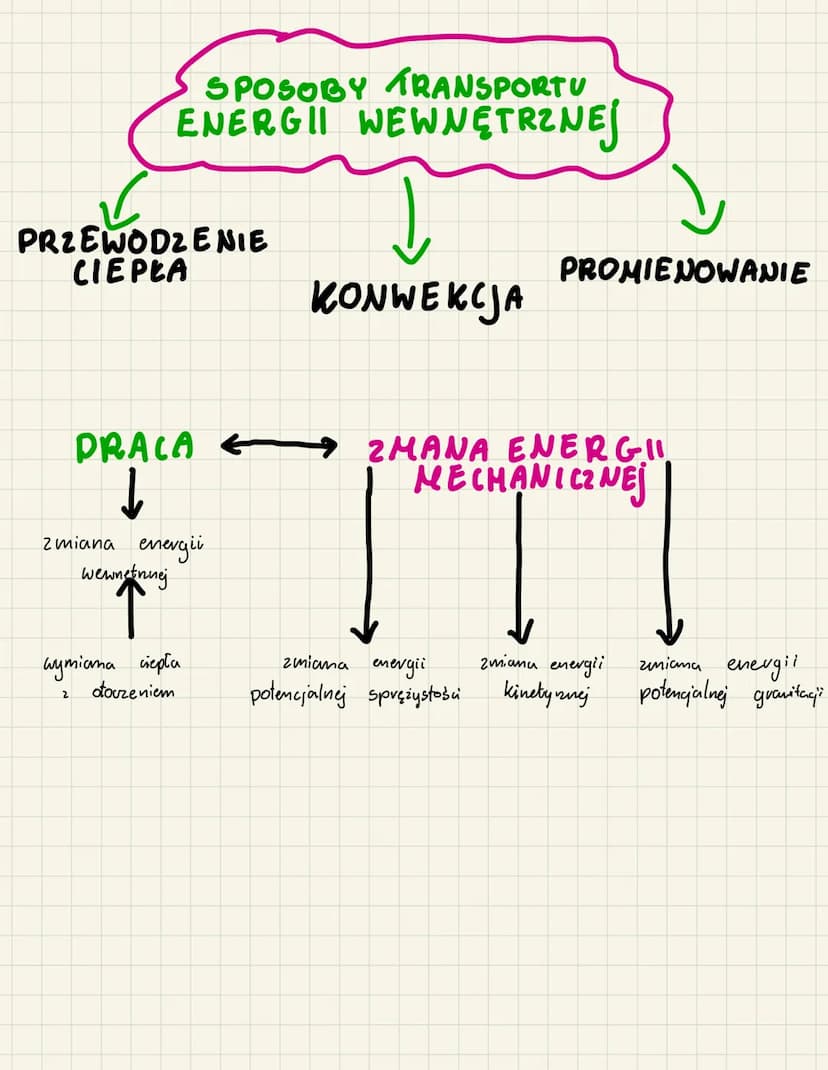 SPOSOBY TRANSPORTU
ENERGII WEWNĘTRZNEJ
PRZEWODZENIE
CIEPŁA
KONWEKCJA
PROMIENIOWANIE
PRACA
ZMIANA ENERGII
MECHANICZNEJ
zmiana energii
wewnętrznej
wymiana ciepła
z otoczeniem
zmiana energii
potencjalnej sprężystości
zmiana energii
kinetycznej
zmiana energii
potencjalnej grawitacji